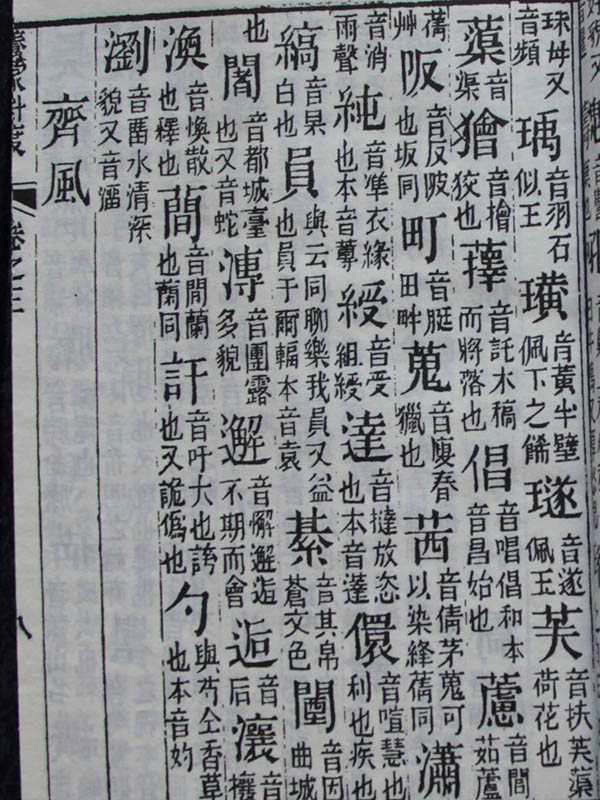 珠母又音頻瑀音羽石似玉璜音黃半璧佩下之餙璲音遂佩玉芙音扶芙蕖荷花也
蕖音渠獪音擔狡也蘀音託木稿而將落也倡音唱倡和本音昌始也藘音閭茹藘
蒨艸阪音反陂也坂同町音脡田畔蒐音廋春獵也茜音倩茅蒐可以染絳蒨同瀟
音消雨聲純音準衣緣也本音蓴綬音受組綬達音撻放恣也本音蓬儇音喧慧也利也疾也
縞音杲白也員與云同聊樂我員又益也員于爾輻本音袁綦音其帛蒼文色闉音因曲城
也闍音都城臺也又音蛇漙音團露多貌邂音懈邂逅不期而會逅音后瀼音攘
渙音煥散也釋也蕑音間蘭也蘭同訏音吁大也誇也又詭偽也勺與芍仝香草也本音妁
瀏音畱水清深貌又音溜
齊風
卷之三
八